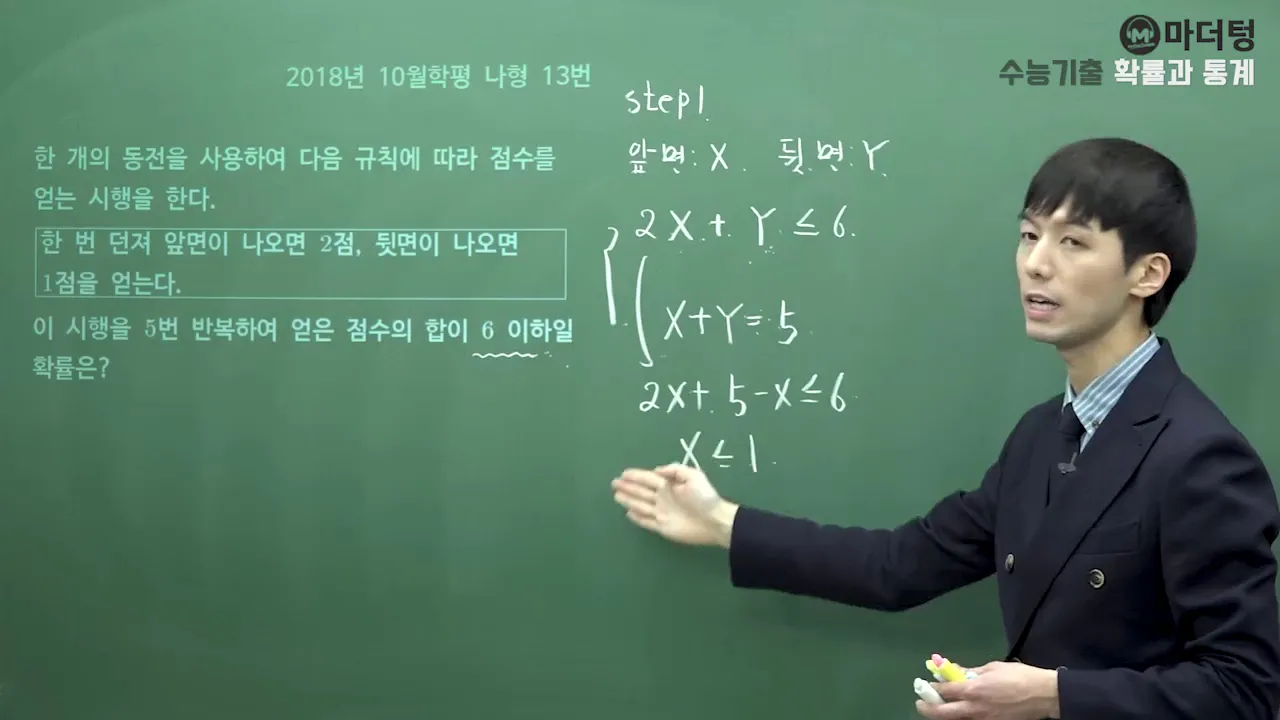 마더텅
수능기출 확률과 통계
2018년 10월학평 나형 13번
한 개의 동전을 사용하여 다음 규칙에 따라 점수를
얻는 시행을 한다.
한 번 던져 앞면이 나오면 2점, 뒷면이 나오면
1점을 얻는다.
이 시행을 5번 반복하여 얻은 점수의 합이 6 이하일
확률은?
step1.
앞면: X 뒷면: Y
2X + Y ≤ 6
X+Y=5
2X+5-X≤6
X≤1